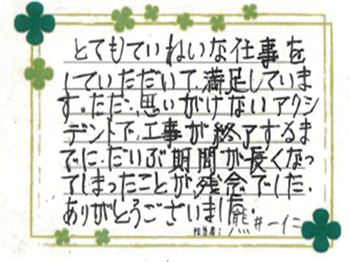 とてもていねいな仕事を
していただいて満足していま
す。ただ、思いがけないアクシ
デントで、工事が終了するま
でに、だいぶ期間が長くなっ
てしまったことが、残念でした。
ありがとうございました。
担当者: 熊井一仁